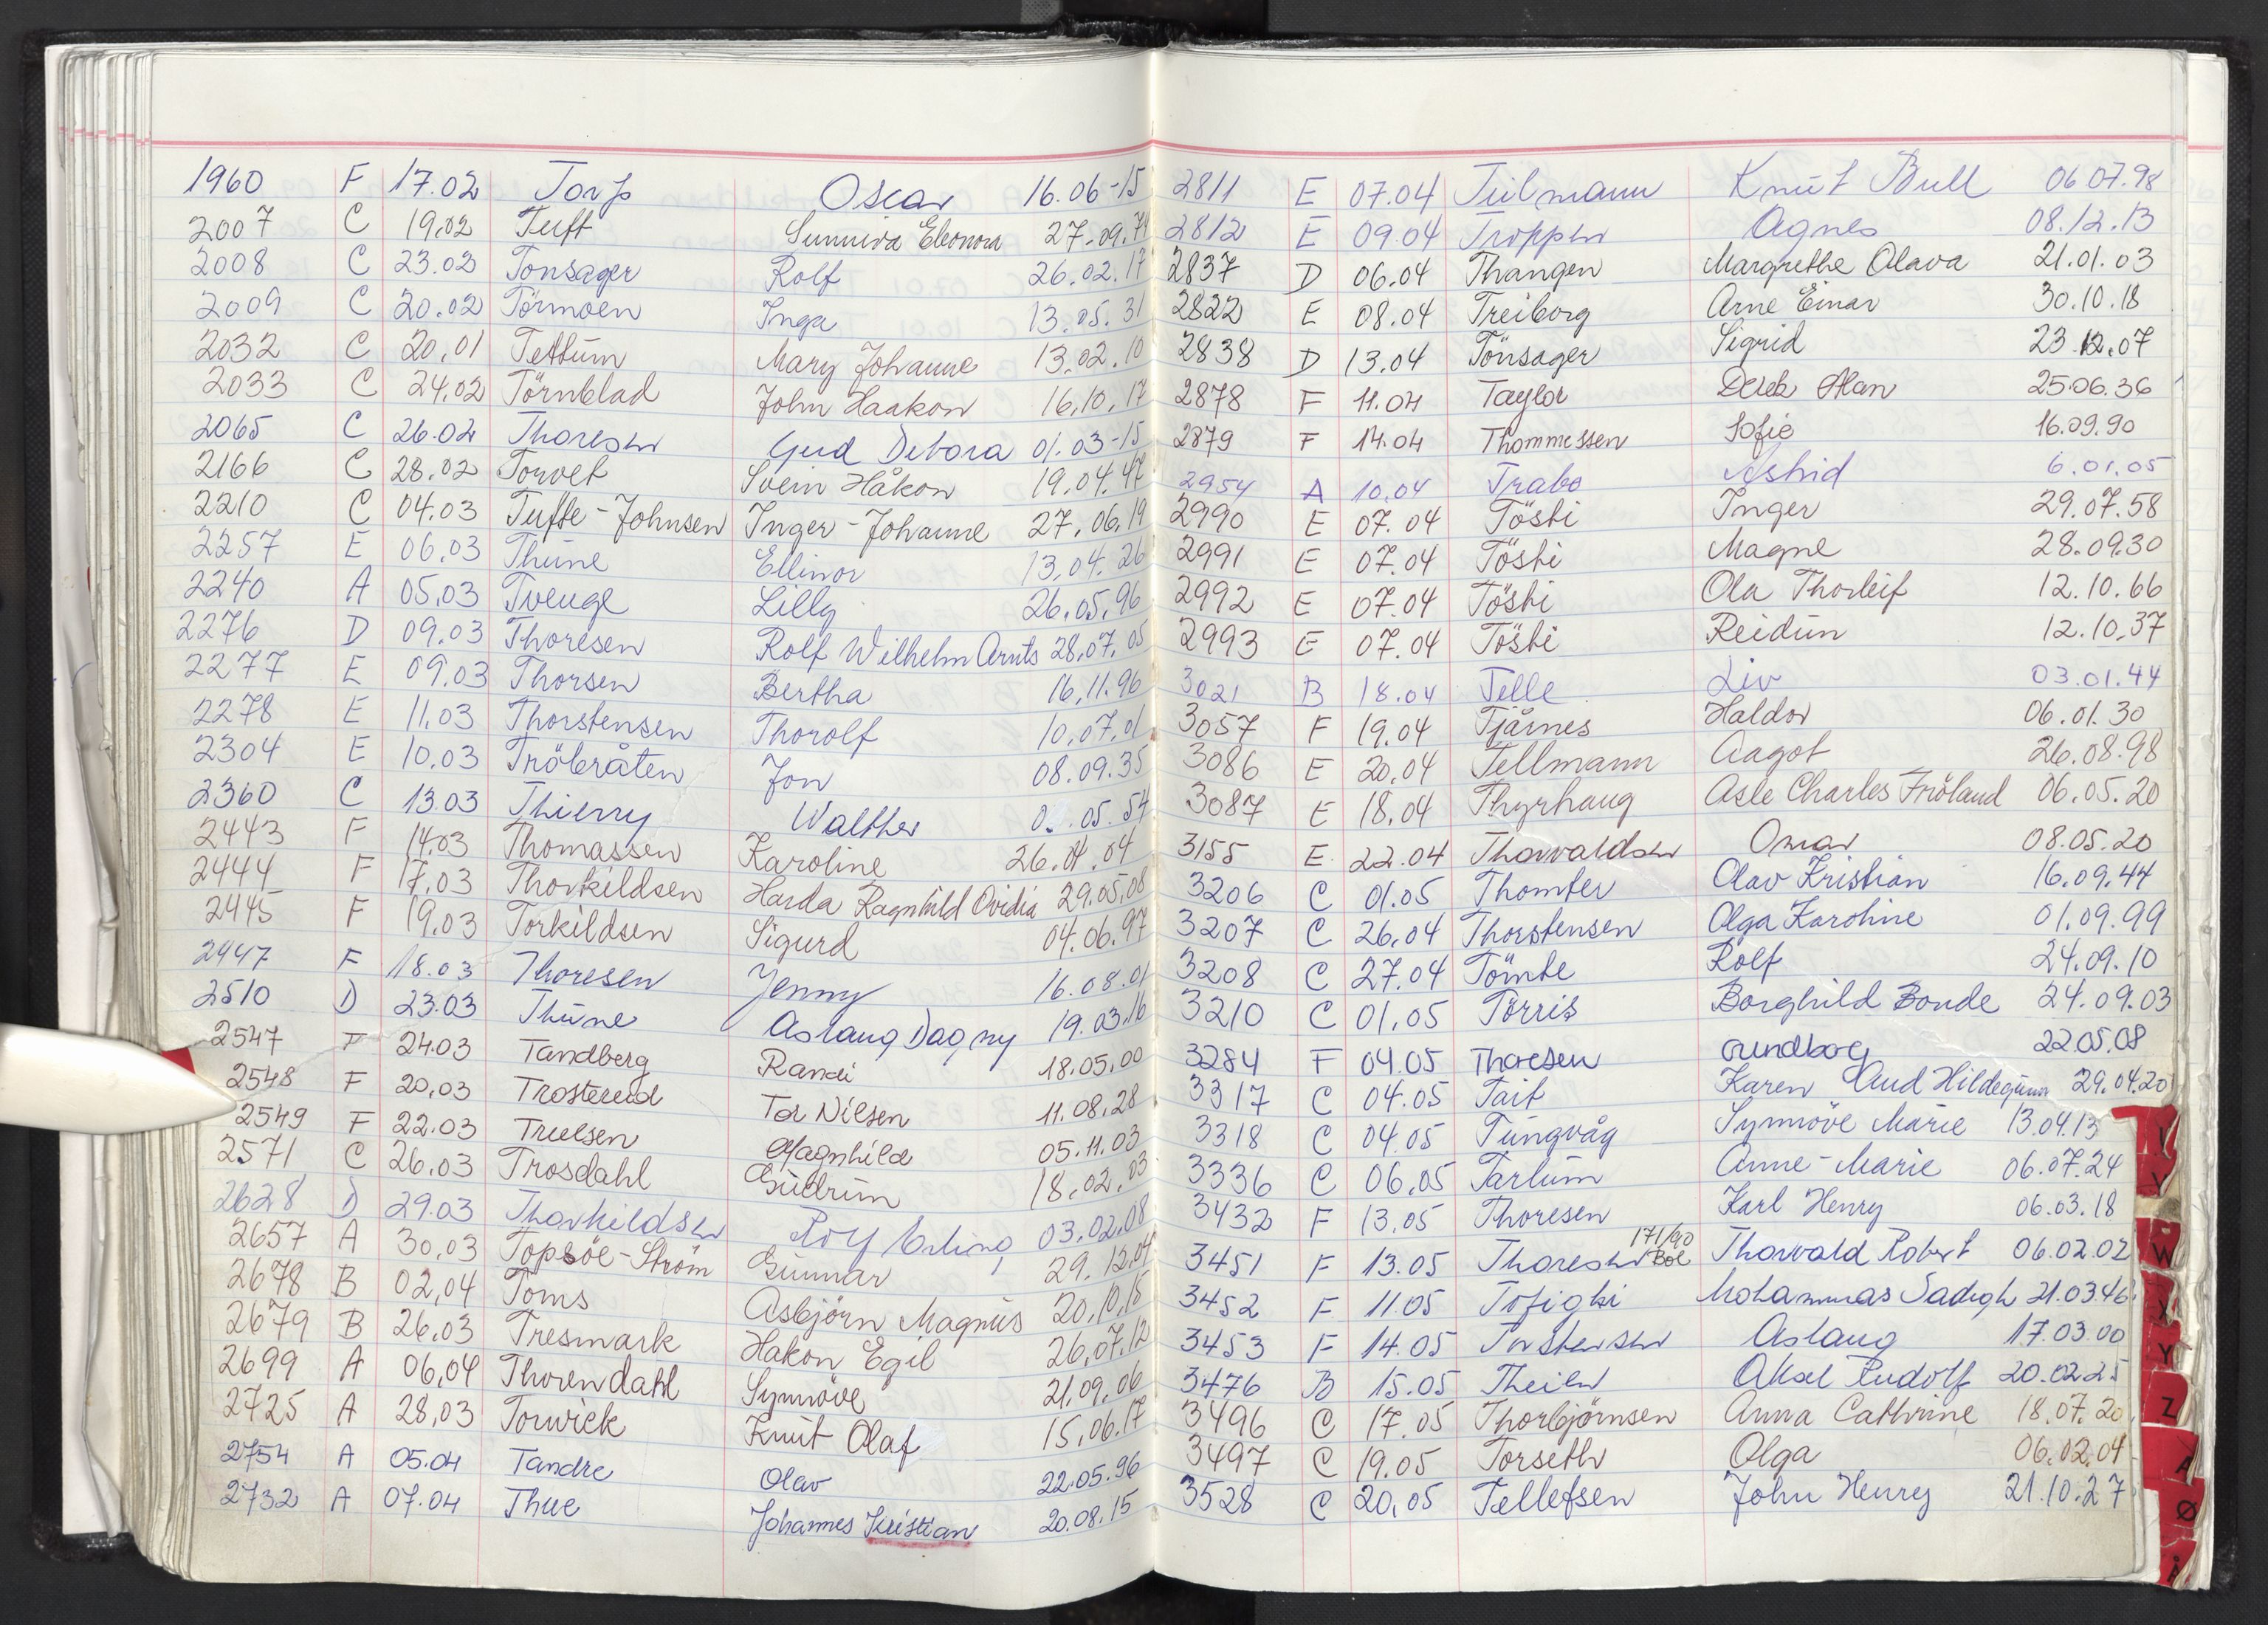 1960 F 17.02 Torp Oscar 16.06-15
2007 C 19.02 Tuft Sunniva Eleonora 27.09.74
2008 C 23.02 Tonsager Rolf 26.02.17
2009 C 20.02 Törmoen Inga 13.05.31
2032 C 20.01 Tettum Mary Johanne 13.02.10
2033 C 24.02 Törnblad John Haakon 16.10.17
2065 C 26.02 Thoresen Gerd Debora 01.03-15
2166 C 28.02 Torvet Svein Håkon 19.04.47
2210 C 04.03 Tufte-Johnsen Inger-Johanne 27.06.19
2257 E 06.03 Thune Ellinor 13.04.26
2240 A 05.03 Tvenge Lilly 26.05.96
2276 D 09.03 Thoresen Rolf Wilhelm Arnts 28.07.05
2277 E 09.03 Thorsen Bertha 16.11.96
2278 E 11.03 Thorstensen Thorolf 10.07.01
2304 E 10.03 Tröbråten Jon 08.09.35
2360 C 13.03 Thierry Walther .05.54
2443 F 14.03 Thomassen Karoline 26.01.04
2444 F 17.03 Thorkildsen Harda Ragnhild Ovidia 29.05.08
2445 F 19.03 Torkildsen Sigurd 04.06.97
2447 F 18.03 Thoresen Jenny 16.08.01
2510 D 23.03 Thune Aslaug Dagny 19.03.16
2547 F 24.03 Tandberg Randi 18.05.00
2548 F 20.03 Trostereid Tor Nilsen 11.08.28
2549 F 22.03 Truelsen Magnhild 05.11.03
2571 C 26.03 Trosdahl Gudrun 18.02.03
2628 D 29.03 Thorkildsen Rolf Erling 03.02.08
2657 A 30.03 Topsöe-Ström Gunnar 29.12.04
2678 B 02.04 Toms Asbjörn Magnus 20.10.15
2679 B 26.03 Tresmark Håkon Egil 26.07.12
2699 A 06.04 Thorendahl Synnöve 21.09.06
2725 A 28.03 Torwick Knut Olaf 15.06.17
2754 A 05.04 Tandre Olav 22.05.96
2732 A 07.04 Thue Johannes Kristian 20.08.15
2811 E 07.04 Tulmann Knut Bull 06.07.98
2812 E 09.04 Tropper Agnes 08.12.13
2837 D 06.04 Thangen Margrethe Olava 21.01.03
2822 E 08.04 Treiborg Arne Einar 30.10.18
2838 D 13.04 Tönsager Sigrid 23.12.07
2878 F 11.04 Taylor Derek Alan 25.06.36
2879 F 14.04 Thommessen Sofie 16.09.90
2954 A 10.04 Trabo Astrid 6.01.05
2990 E 07.04 Töshi Inger 29.07.58
2991 E 07.04 Töshi Magne 28.09.30
2992 E 07.04 Töshi Ola Thorleif 12.10.66
2993 E 07.04 Töshi Reidun 12.10.37
3021 B 18.04 Telle Liv 03.01.44
3057 F 19.04 Tjårnes Haldor 06.01.30
3086 E 20.04 Tellmann Aagot 26.08.98
3087 E 18.04 Thyrhaug Asle Charles Fröland 06.05.20
3155 E 22.04 Thorvaldsen Omar 08.05.20
3206 C 01.05 Thomter Olav Kristian 16.09.44
3207 C 26.04 Thorstensen Olga Karoline 01.09.99
3208 C 27.04 Tömte Rolf 24.09.10
3210 C 01.05 Törris Borghild Bonde 24.09.03
3284 F 04.05 Thoresen Gundborg 22.05.08
3317 C 04.05 Tait Karen Aud Hildegunn 29.04.20
3318 C 04.05 Tungvåg Synnöve Marie 13.04.13
3336 C 06.05 Tartum Anne-Marie 06.07.24
3432 F 13.05 Thoresen Karl Henry 06.03.18
171/90
3451 F 13.05 Thoresen Boe Thorvald Robert 06.02.02
3452 F 11.05 Tofighi Mohammas Sadegh 21.03.46
3453 F 14.05 Torstensen Aslaug 17.03.00
3476 B 15.05 Theien Aksel Rudolf 20.02.25
3496 C 17.05 Thorbjörnsen Anna Cathrine 18.07.20
3497 C 19.05 Torseth Olga 06.02.04
3528 C 20.05 Tellefsen John Henry 21.10.27
V
W
X
Y
Z
Ø
Å